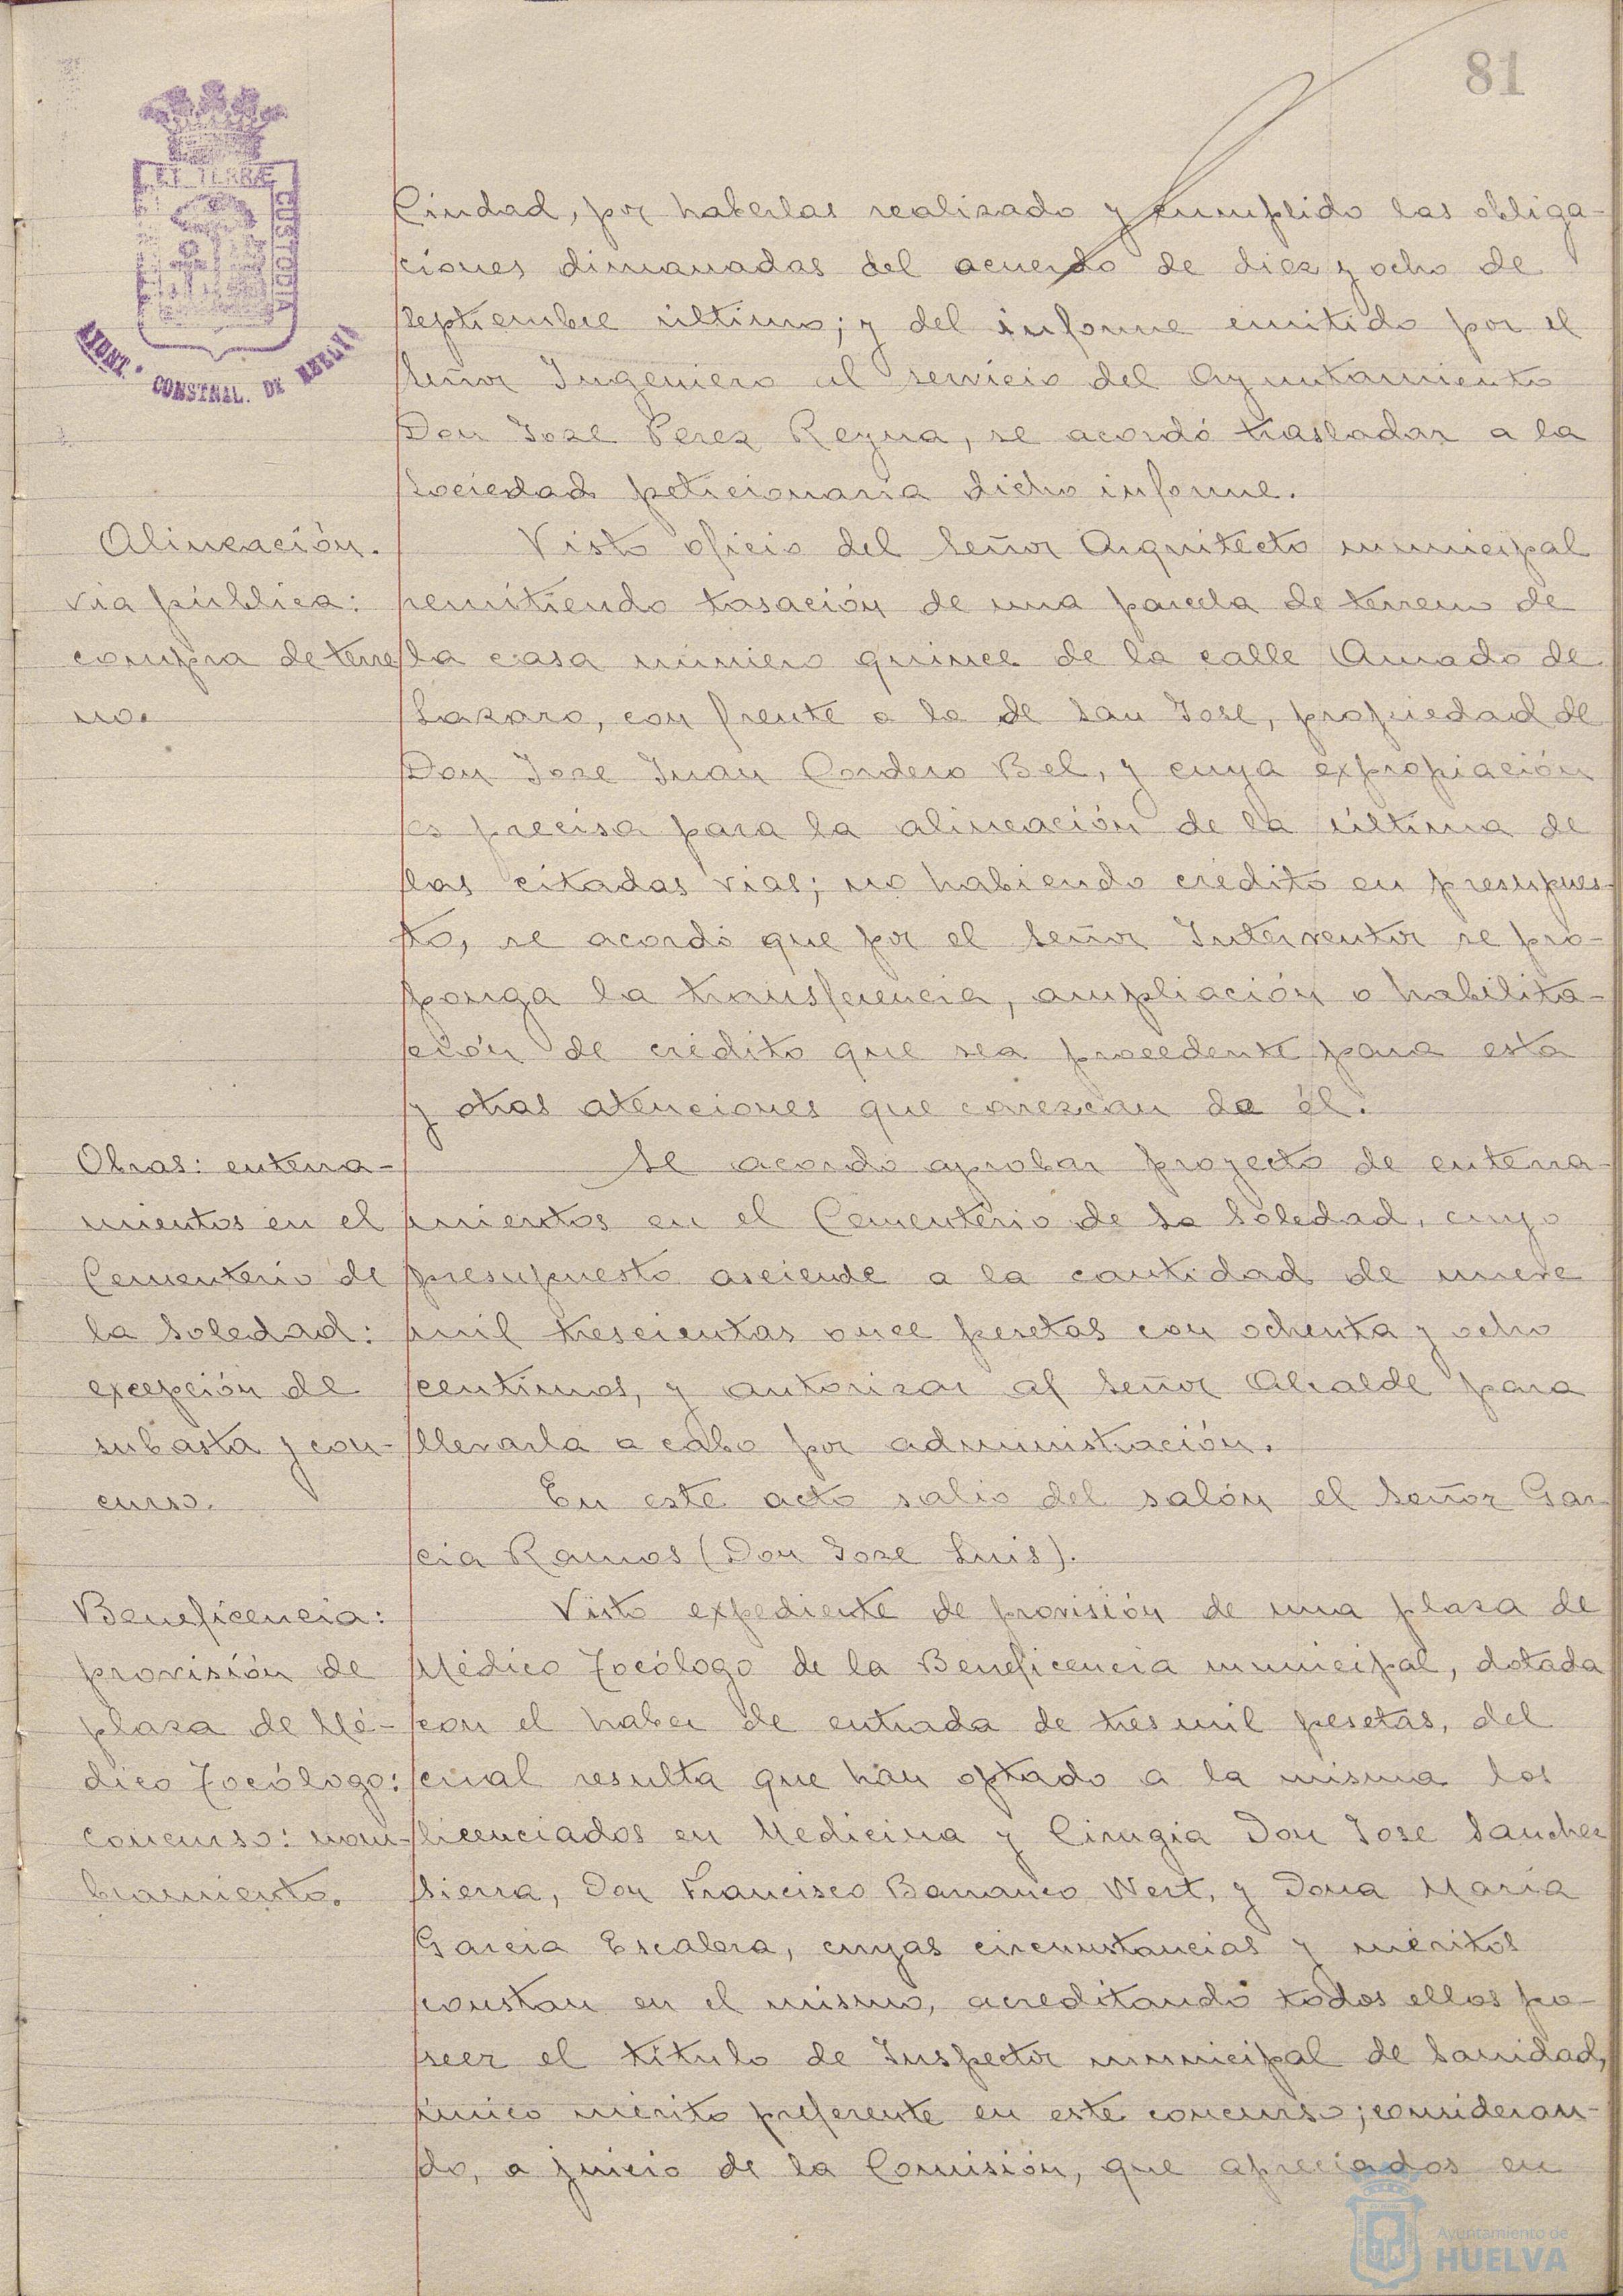 81
ET TERRÆ
CUSTODIA
AYUNT. CONSTNAL. DE HUELVA
Ciudad, por haberlas realizado y cumplido las obliga-
ciones dimanadas del acuerdo de diez y ocho de
septiembre último; y del informe emitido por el
Señor Ingeniero al servicio del Ayuntamiento
Don Jose Perez Reyna, se acordó trasladar a la
sociedad peticionaria dicho informe.
Alineación.
via pública:
compra de terre
no.
Visto oficio del Señor Arquitecto municipal
remitiendo tasación de una parcela de terreno de
la casa número quince de la calle Amado de
Lazaro, con frente a la de San Jose, propiedad de
Don Jose Juan Cordero Bel, y cuya expropiación
es precisa para la alineación de la última de
las citadas vias; no habiendo crédito en presupues-
to, se acordó que por el Señor Interventor se pro-
ponga la transferencia, ampliación o habilita-
ción de crédito que sea procedente para esta
y otras atenciones que carezcan de él.
Obras: enterra-
mientos en el
Cementerio de
la Soledad:
excepción de
subasta y con-
curso.
Se acordo aprobar proyecto de enterra-
mientos en el Cementerio de la Soledad, cuyo
presupuesto asciende a la cantidad de nueve
mil trescientas once pesetas con ochenta y ocho
centimos, y autorizar al Señor Alcalde para
llevarla a cabo por administración.
En este acto salio del salón el Señor Gar
cia Ramos (Don Jose Luis).
Beneficencia:
provisión de
plaza de Mé-
dico Tocólogo:
concurso: nom-
bramiento.
Visto expediente de provisión de una plaza de
Médico Tocólogo de la Beneficencia municipal, dotada
con el haber de entrada de tres mil pesetas, del
cual resulta que han optado a la misma los
licenciados en Medicina y Cirugia Don Jose Sanchez
Sierra, Don Francisco Barranco Wert, y Dona Maria
Garcia Escalera, cuyas circunstancias y méritos
constan en el mismo, acreditando todos ellos po-
seer el título de Inspector municipal de Sanidad,
único mérito preferente en este concurso; consideran-
do, a juicio de la Comisión, que apreciados en
Ayuntamiento de
HUELVA